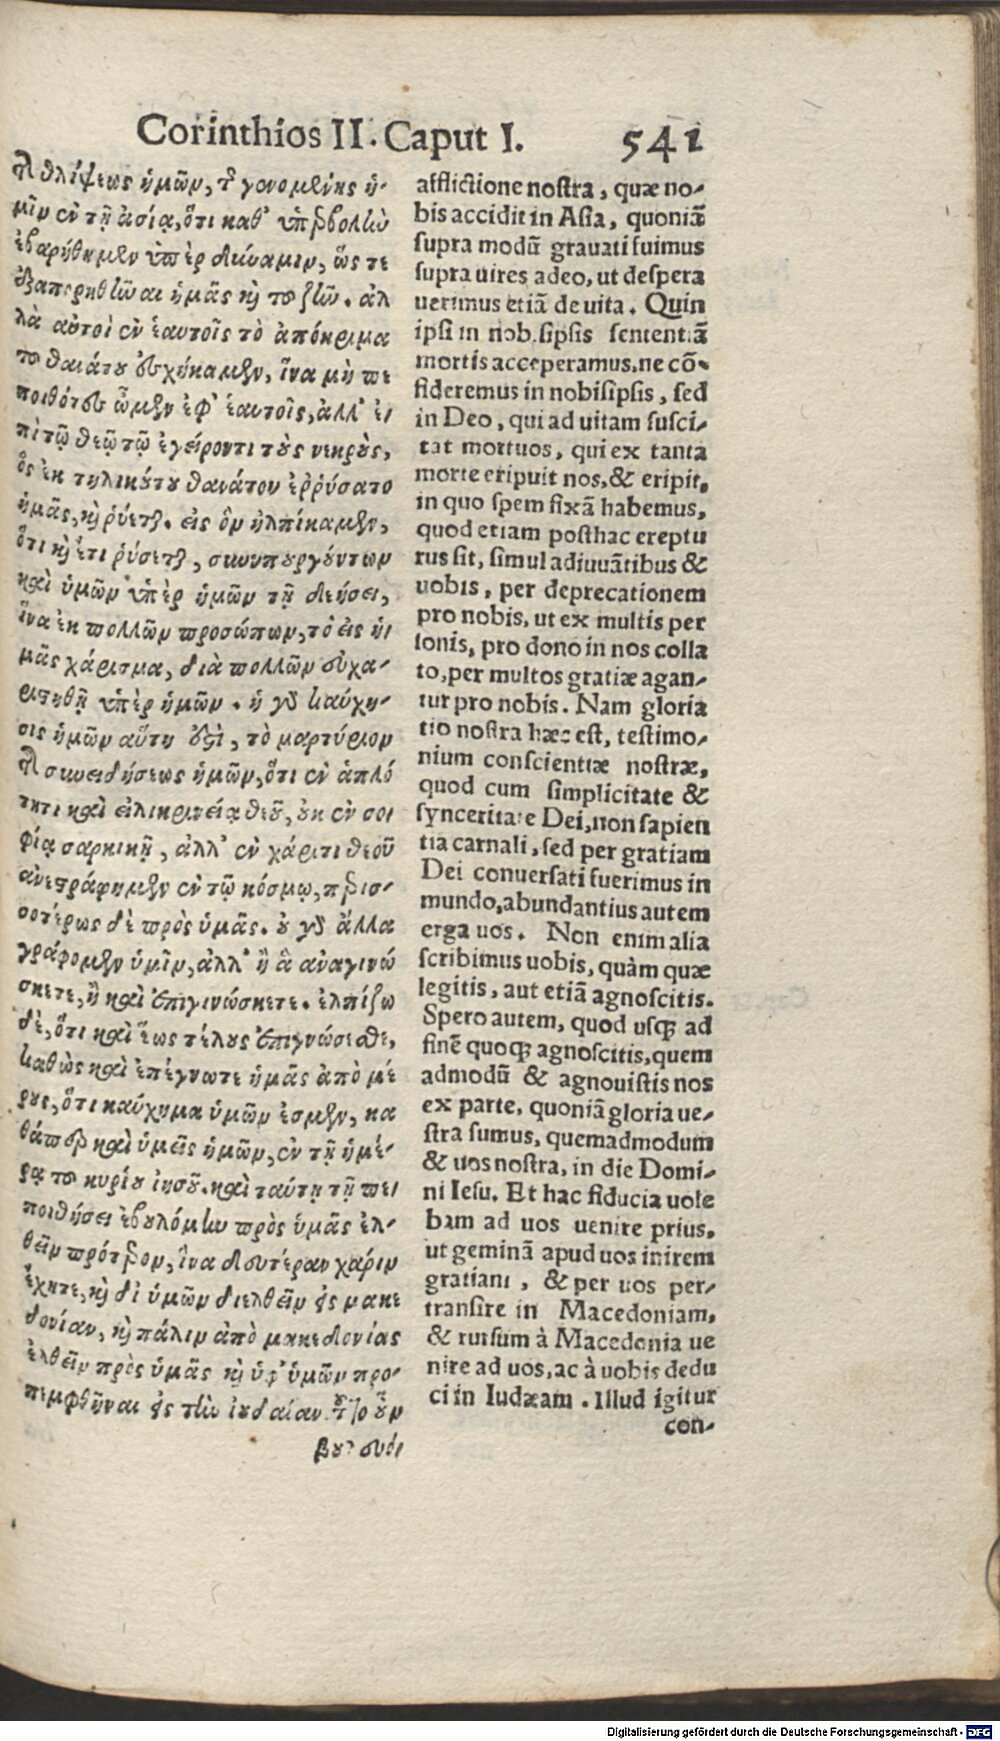 Corinthios II. Caput I. 541
τῆς θλίψεως ἡμῶν, τῆς γενομένης ἡ-
μῖν ἐν τῇ ἀσίᾳ, ὅτι καθ' ὑπερβολὴν
ἐβαρήθημεν ὑπὲρ δύναμιν, ὥς τε
ἐξαπορηθῆναι ἡμᾶς καὶ τοῦ ζῆν. ἀλ
λὰ αὐτοὶ ἐν ἑαυτοῖς τὸ ἀπόκριμα
τοῦ θανάτου ἐσχήκαμεν, ἵνα μὴ πε
ποιθότες ὦμεν ἐφ' ἑαυτοῖς, ἀλλ' ἐ-
πὶ τῷ θεῷ τῷ ἐγείροντι τοὺς νεκροὺς,
ὃς ἐκ τηλικούτου θανάτου ἐῤῥύσατο
ἡμᾶς, καὶ ῥύεται. εἰς ὃν ἠλπίκαμεν,
ὅτι καὶ ἔτι ῥύσεται, συνυπουργούντων
καὶ ὑμῶν ὑπὲρ ἡμῶν τῇ δεήσει,
ἵνα ἐκ πολλῶν προσώπων, τὸ εἰς ἡ-
μᾶς χάρισμα, διὰ πολλῶν εὐχα-
ριστηθῇ ὑπὲρ ἡμῶν. ἡ γὰρ καύχη-
σις ἡμῶν αὕτη ἐστὶ, τὸ μαρτύριον
τῆς συνειδήσεως ἡμῶν, ὅτι ἐν ἁπλό
τητι καὶ εἰλικρινείᾳ θεοῦ, οὐκ ἐν σοι
φίᾳ σαρκικῇ, ἀλλ' ἐν χάριτι θεοῦ
ἀνεστράφημεν ἐν τῷ κόσμῳ, περισ-
σοτέρως δὲ πρὸς ὑμᾶς. οὐ γὰρ ἄλλα
γράφομεν ὑμῖν, ἀλλ' ἢ ἃ ἀναγινώ
σκετε, ἢ καὶ ἐπιγινώσκετε. ἐλπίζω
δὲ, ὅτι καὶ ἕως τέλους ἐπιγνώσεσθε,
καθὼς καὶ ἐπέγνωτε ἡμᾶς ἀπὸ μέ
ρους, ὅτι καύχημα ὑμῶν ἐσμεν, κα
θάπερ καὶ ὑμεῖς ἡμῶν, ἐν τῇ ἡμέ-
ρᾳ τοῦ κυρίου ἰησοῦ. καὶ ταύτῃ τῇ πε-
ποιθήσει ἐβουλόμην πρὸς ὑμᾶς ἐλ-
θεῖν πρότερον, ἵνα δευτέραν χάριν
ἔχητε, καὶ δι' ὑμῶν διελθεῖν εἰς μακε
δονίαν, καὶ πάλιν ἀπὸ μακεδονίας
ἐλθεῖν πρὸς ὑμᾶς καὶ ὑφ' ὑμῶν προ-
πεμφθῆναι εἰς τὴν ἰουδαίαν. τοῦτο οὖν
afflictione nostra, quæ no-
bis accidit in Asia, quoniā
supra modū grauati fuimus
supra uires adeo, ut despera
uerimus etiā de uita. Quin
ipsi in nobisipsis sententiā
mortis acceperamus, ne cō-
fideremus in nobisipsis, sed
in Deo, qui ad uitam susci-
tat mortuos, qui ex tanta
morte eripuit nos, & eripit,
in quo spem fixā habemus,
quod etiam posthac ereptu
rus sit, simul adiuuātibus &
uobis, per deprecationem
pro nobis, ut ex multis per
sonis, pro dono in nos colla
to, per multos gratiæ agan-
tur pro nobis. Nam gloria
tio nostra hæc est, testimo-
nium conscientiæ nostræ,
quod cum simplicitate &
synceritate Dei, non sapien
tia carnali, sed per gratiam
Dei conuersati fuerimus in
mundo, abundantius autem
erga uos. Non enim alia
scribimus uobis, quàm quæ
legitis, aut etiā agnoscitis.
Spero autem, quod usq; ad
finē quoq; agnoscitis, quem
admodū & agnouistis nos
ex parte, quoniā gloria ue-
stra sumus, quemadmodum
& uos nostra, in die Domi-
ni Iesu. Et hac fiducia uole
bam ad uos uenire prius,
ut geminā apud uos inirem
gratiam, & per uos per-
transire in Macedoniam,
& rursum à Macedonia ue
nire ad uos, ac à uobis dedu
ci in Iudæam. Illud igitur
con-
Digitalisierung gefördert durch die Deutsche Forschungsgemeinschaft - DFG